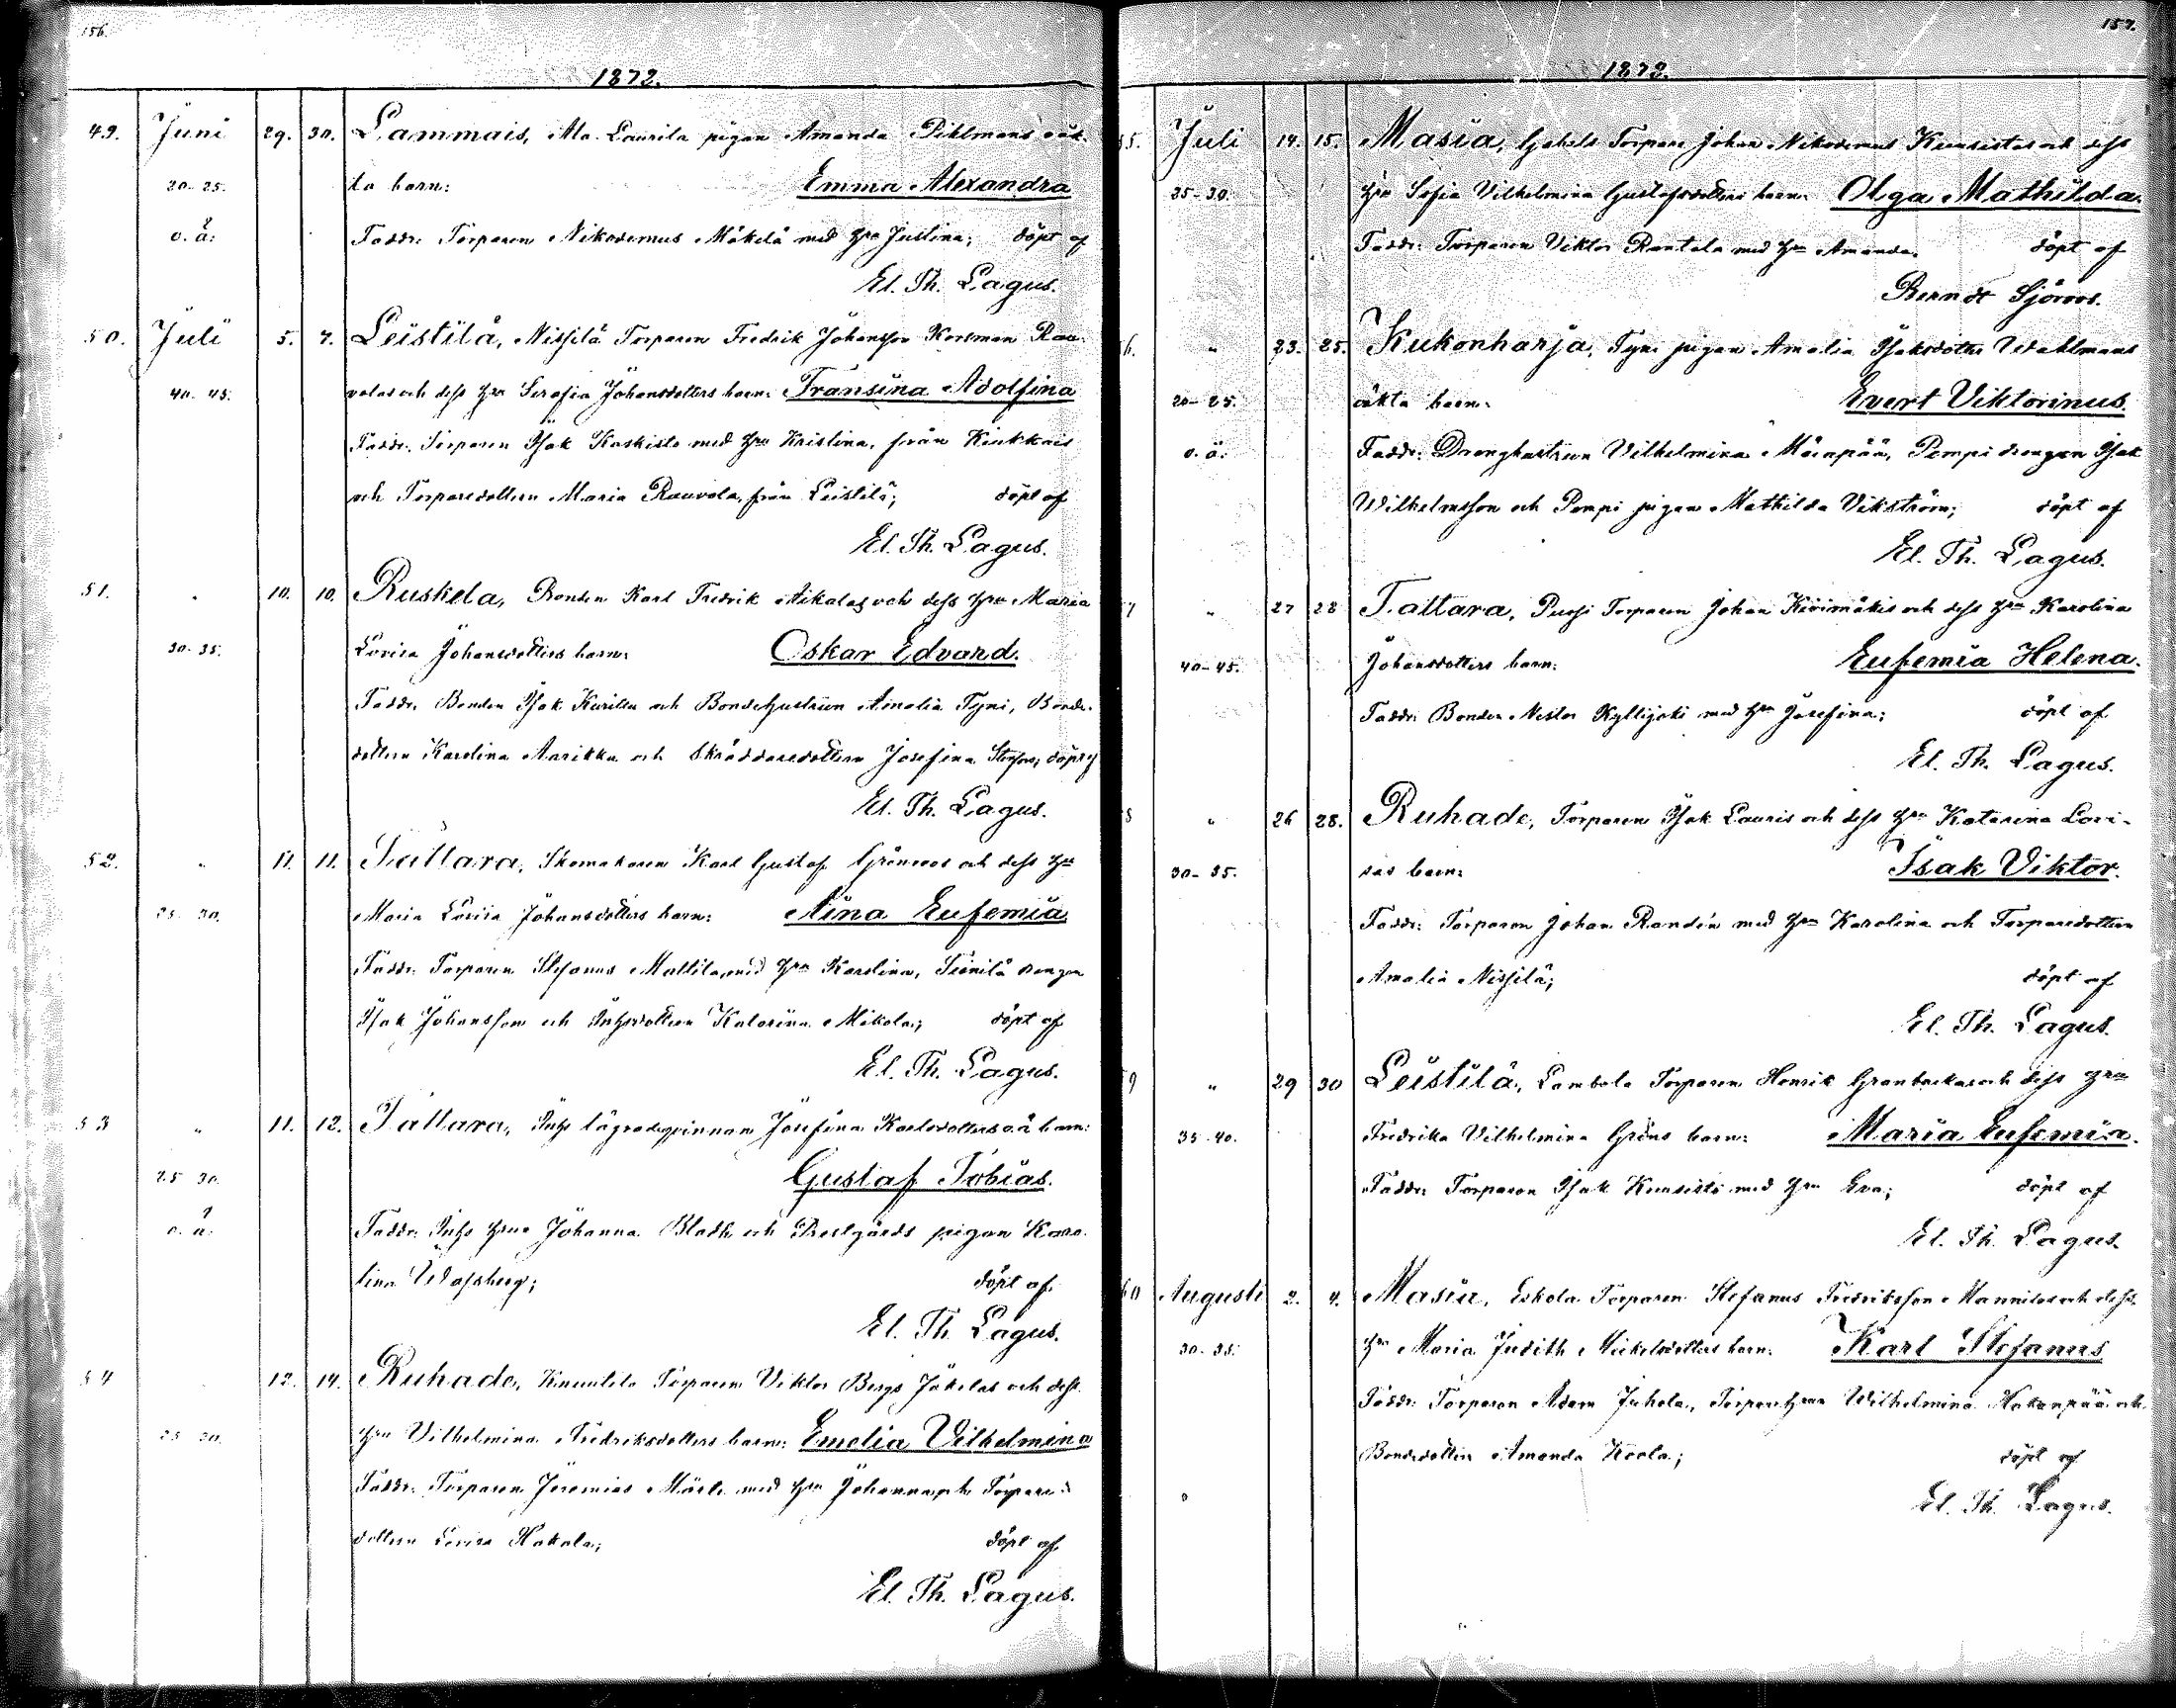 156.
1872.
49. Juni 29. 30. Lammais, Ala Laurila pigan Amanda Pihlmans oäk-
20-25. ta barn: Emma Alexandra
o. ä. Faddr: Torparen Nikodemus Mäkelä med hru Justina; döpt af
El. Th. Lagus.
50. Juli 5. 7. Leistilä, Nissilä Torparen Fredrik Johansson Korsman Rau-
40-45. volas och dess hru Serafia Johansdotters barn: Fransina Adolfina
Faddr: Torparen Isak Kaskisto med hru Kristina, från Kiukkais
och Torparedottern Maria Rauvola, från Leistilä; döpt af
El. Th. Lagus.
51. " 10. 10. Ruskela, Bonden Karl Fredrik Nikolas och dess hru Maria
30-35. Lovisa Johansdotters barn: Oskar Edvard.
Faddr: Bonden Isak Kurila och Bondehustrun Amalia Tyni, Bonde-
dottern Karolina Aarikka och Skräddaredottern Josefina döpt af
El. Th. Lagus.
52. " 11. 11. Tattara, Skomakaren Karl Gustaf Grönroos och dess hru
25-30. Maria Lovisa Johansdotters barn: Aina Eufemia
Faddr: Torparen Stefanus Mattila med hru Karolina, drengen
Isak Johansson och Inhysdottern Katarina Mikola; döpt af
El. Th. Lagus.
53 " 11. 12. Tattara, Inhs Josefina Karlsdotters o.ä barn:
25-30. Gustaf Tobias.
o. ä. Faddr: Inhs hrun Johanna Bladh och Prestgårds pigan Karo-
lina döpt af
El. Th. Lagus.
54 12. 14. Ruhade, Torparen Viktor Bergs Jäkelas och dess
25-30. hru Vilhelmina Fredriksdotters barn: Emelia Vilhelmina
Faddr: Torparen Jeremias med hru Johanna och Torpare-
dottern Lovisa Hakala; döpt af
El. Th. Lagus.
157.
1872.
55. Juli 14. 15. Masia, Torparen Johan Nikodemus Kuusistos och dess
25-30. hru Sofia Vilhelmina Gustafsdotters barn: Olga Mathilda.
Faddr: Torparen Viktor Rantala med hru Amanda. döpt af
Berndt Sjöroos.
6. " 23. 25. Kukonharja, Tyni pigan Amalia Isaksdotter Wahlmans
20-25. oäkta barn: Evert Viktorinus.
o. ä. Faddr: Drenghustrun Vilhelmina Mäenpää, Pempi drengen Isak
Wilhelmsson och Pempi pigan Mathilda Vikström; döpt af
El. Th. Lagus.
7 " 27 28 Tattara, Torparen Johan Kivimäkis och dess hru Karolina
40-45. Johansdotters barn: Eufemia Helena.
Faddr: Bonden Nestor Kyllijoki med hru Josefina; döpt af
El. Th. Lagus.
8 " 26 28. Ruhade, Torparen Isak Lauris och dess hru Katarina Lovi-
30-35. sas barn: Isak Viktor.
Faddr: Torparen Johan Randén med hru Karolina och Torparedottern
Amalia Nissilä; döpt af
El. Th. Lagus.
9 " 29 30 Leistilä, Lambola Torparen Henrik Granbackas och dess hru
35-40. Fredrika Vilhelmina Gröns barn: Maria Eufemia.
Faddr: Torparen Isak Kuusisto med hru Eva; döpt af
El. Th. Lagus.
60 Augusti 2. 4. Masia, Eskola Torparen Stefanus Fredriksson Mannilas och dess
30-35. hru Maria Judith Mickelsdotters barn: Karl Stefanus
Faddr: Torparen Adam Juhola, Torparehrun Wilhelmina Hakanpää och
Bondedottern Amanda Koola; döpt af
El. Th. Lagus.